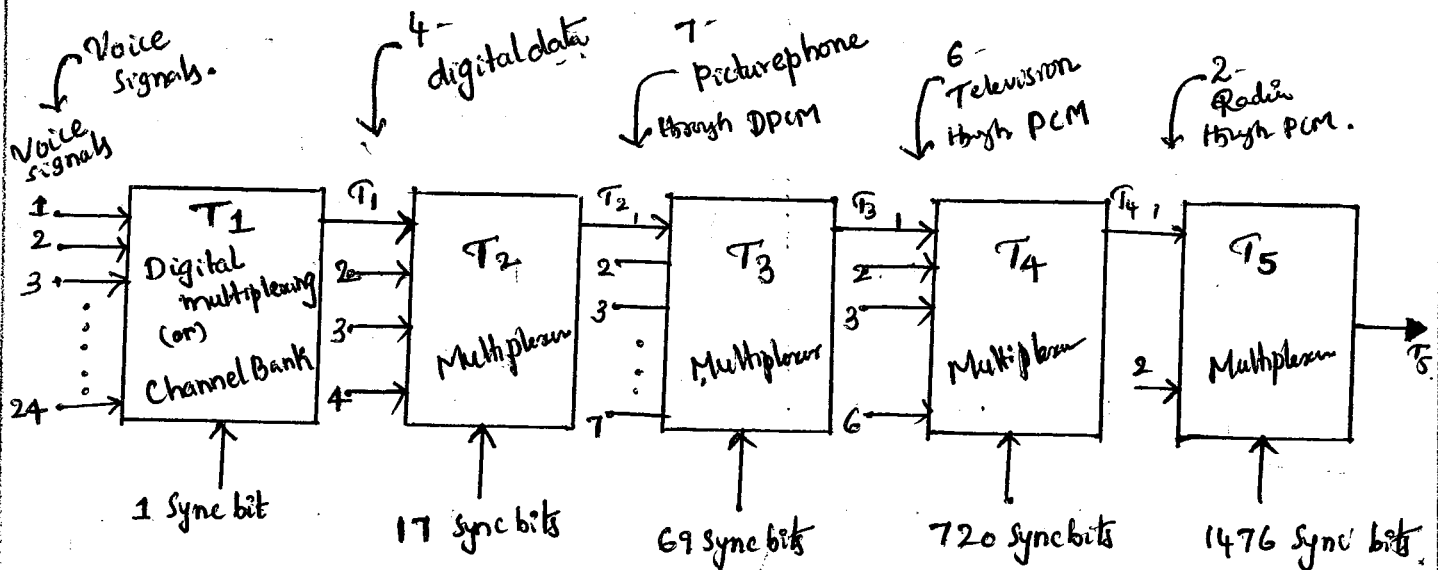 Voice
signals.
4-
digital data
7-
Picturephone
through DPCM
6-
Television
through PCM
2-
Radio
through PCM.
Voice
signals
1
2
3
24
T1
Digital
multiplexing
(or)
Channel Bank
1 Sync bit
T1
2
3
4
T2
Multiplexer
17 Sync bits
T2 1
2
3
7
T3
Multiplexer
69 Sync bits
T3 1
2
3
6
T4
Multiplexer
720 Sync bits
T4 1
2
T5
Multiplexer
1476 Sync bits.
T5